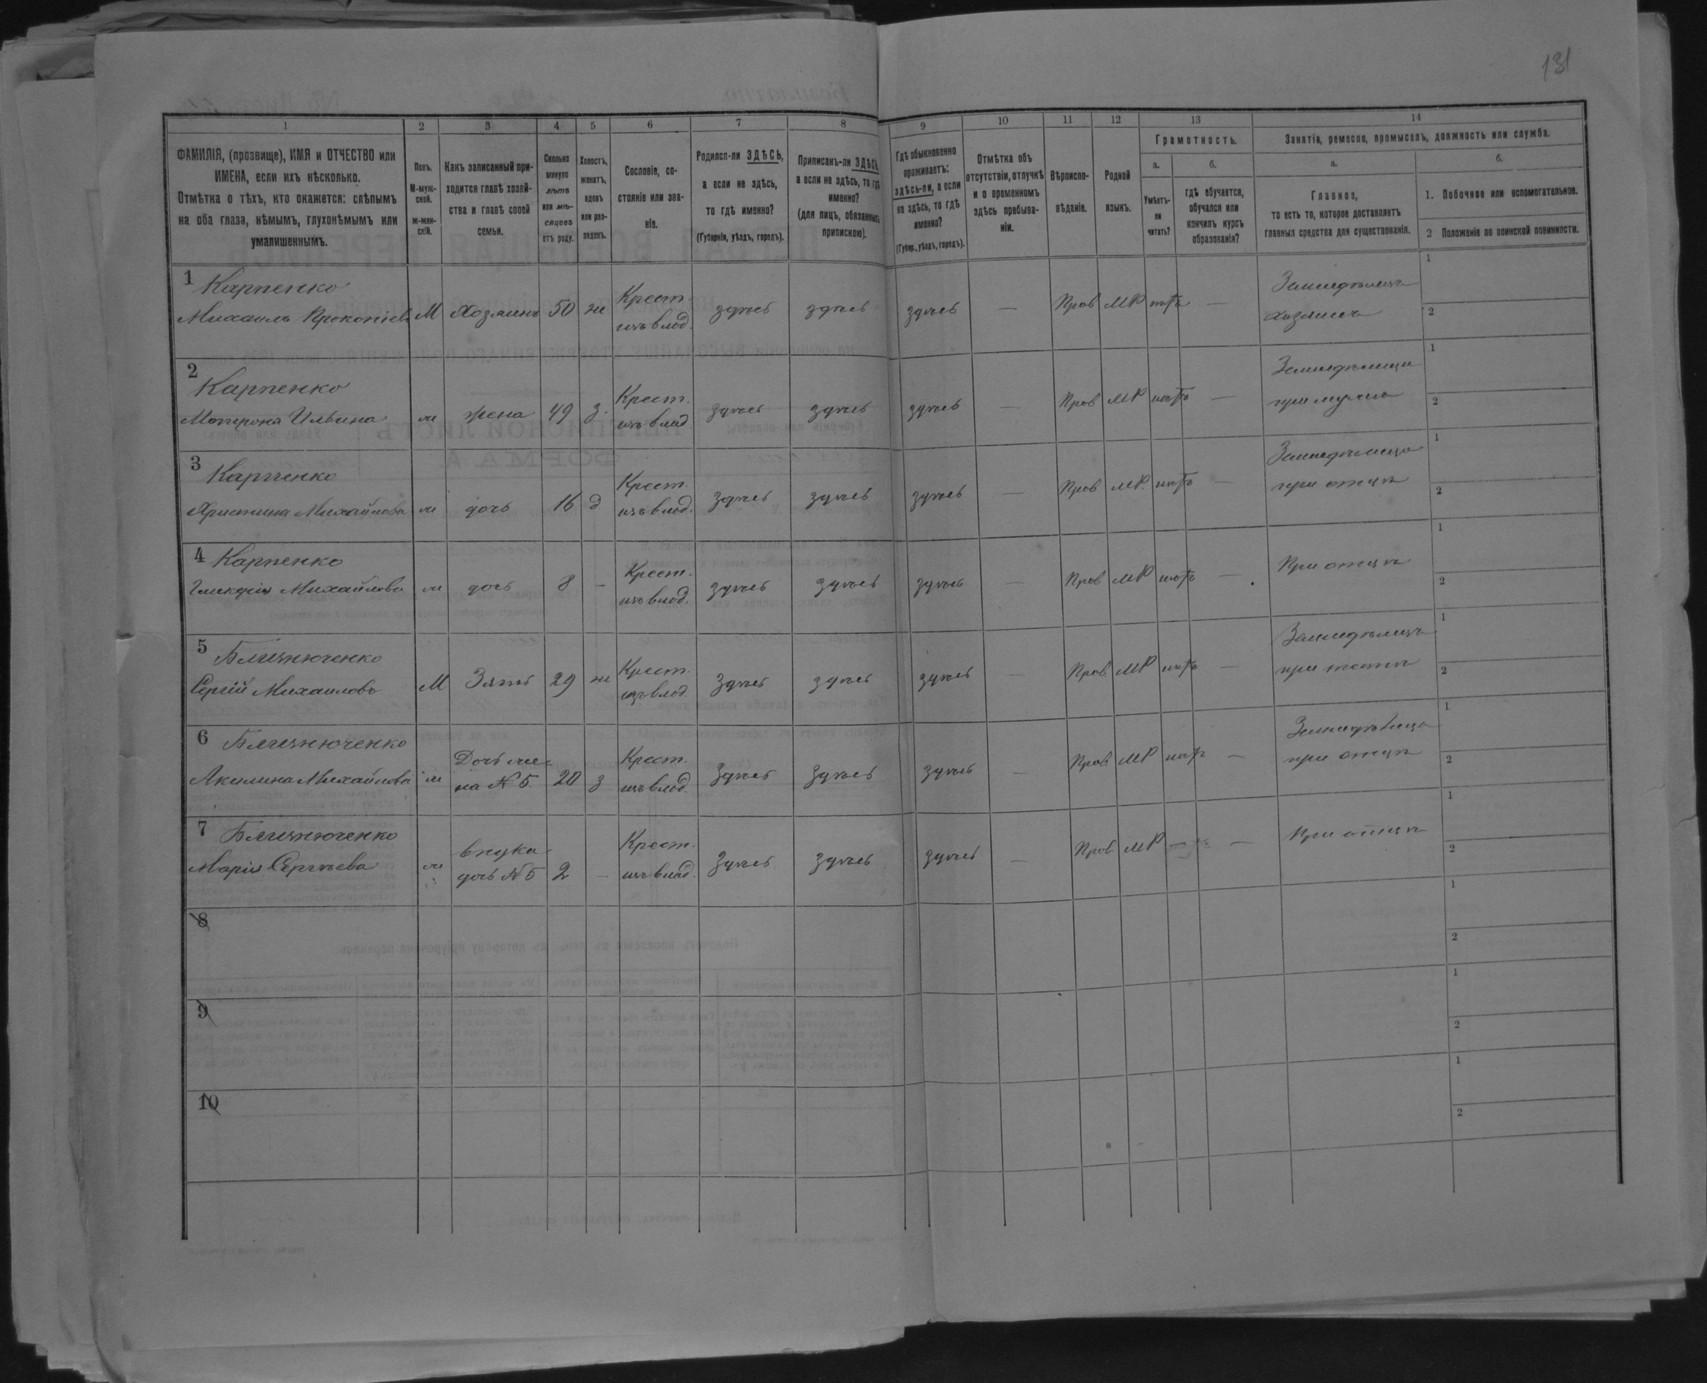 131
1 2 3 4 5 6 7 8 9 10 11 12 13 14
ФАМИЛІЯ, (прозвище), ИМЯ и ОТЧЕСТВО или
ИМЕНА, если ихъ нѣсколько.
Отмѣтка о тѣхъ, кто окажется: слѣпымъ
на оба глаза, нѣмымъ, глухонѣмымъ или
умалишеннымъ.
Полъ.
М-муж-
ской.
ж-жен-
скій.
Какъ записанный при-
ходится главѣ хозяй-
ства и главѣ своей
семьи.
Сколько
минуло
лѣтъ
или мѣ-
сяцевъ
отъ роду.
Холостъ,
женатъ,
вдовъ
или раз-
веденъ.
Сословіе, со-
стояніе или зва-
ніе.
Родился-ли ЗДѢСЬ,
а если не здѣсь,
то гдѣ именно?
(Губернія, уѣздъ, городъ).
Приписанъ-ли ЗДѢСЬ,
а если не здѣсь, то гдѣ
именно?
(для лицъ, обязанныхъ
припискою).
Гдѣ обыкновенно
проживаетъ:
здѣсь-ли, а если
не здѣсь, то гдѣ
именно?
(Губер., уѣздъ, городъ).
Отмѣтка объ
отсутствіи, отлучкѣ
и о временномъ
здѣсь пребыва-
ніи.
Вѣроиспо-
вѣданіе.
Родной
языкъ.
Грамотность.
а.
Умѣетъ-
ли
читать?
б.
гдѣ обучается,
обучался или
кончилъ курсъ
образованія?
Занятіе, ремесло, промыселъ, должность или служба.
а.
Главное,
то есть то, которое доставляетъ
главныя средства для существованія.
б.
1. Побочное или вспомогательное.
2 Положеніе по воинской повинности.
1 Карпенко
Михаилъ Прокопіевъ М Хозяинъ 50 ж Крест. изъ влад. здѣсь здѣсь здѣсь — Прав МР нѣтъ — Земледѣлецъ хозяинъ 1 2
2 Карпенко
Матрона Ильина ж жена 49 з. Крест. изъ влад здѣсь здѣсь здѣсь — Прав МР нѣтъ — Земледѣлица при мужѣ 1 2
3 Карпенко
Христина Михайлова ж дочь 16 д Крест. изъ влад. здѣсь здѣсь здѣсь — Прав МР. нѣтъ — Земледѣлица при отцѣ 1 2
4 Карпенко
Гликерія Михайлова ж дочь 8 — Крест. изъ влад. здѣсь здѣсь здѣсь — Прав МР нѣтъ — При отцѣ 1 2
5 Близнюченко
Сергій Михаиловъ М Зять 29 ж Крест. изъ влад здѣсь здѣсь здѣсь — Прав МР нѣтъ — Земледѣлецъ при тестѣ 1 2
6 Близнюченко
Акилина Михайлова ж Дочь же- на № 5 20 з Крест. изъ влад здѣсь здѣсь здѣсь — Прав МР нѣтъ — Земледѣлица при отцѣ 1 2
7 Близнюченко
Марія Сергѣева ж внука дочь № 5 2 — Крест. изъ влад. здѣсь здѣсь здѣсь — Прав МР — — При отцѣ 1 2
8 1 2
9 1 2
10 1 2